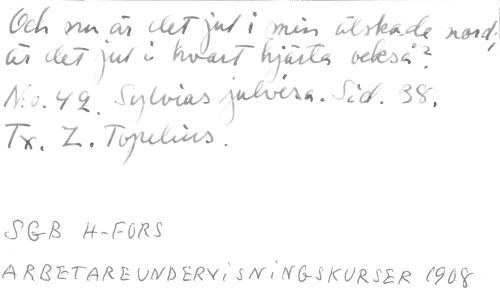 Och nu är det jul i min älskade nord,
är det jul i hvart hjärta också?
N:o. 42. Sylvias julvisa. Sid. 38.
Tx. Z. Topelius.
SGB H-FORS
ARBETAREUNDERVISNINGSKURSER 1908